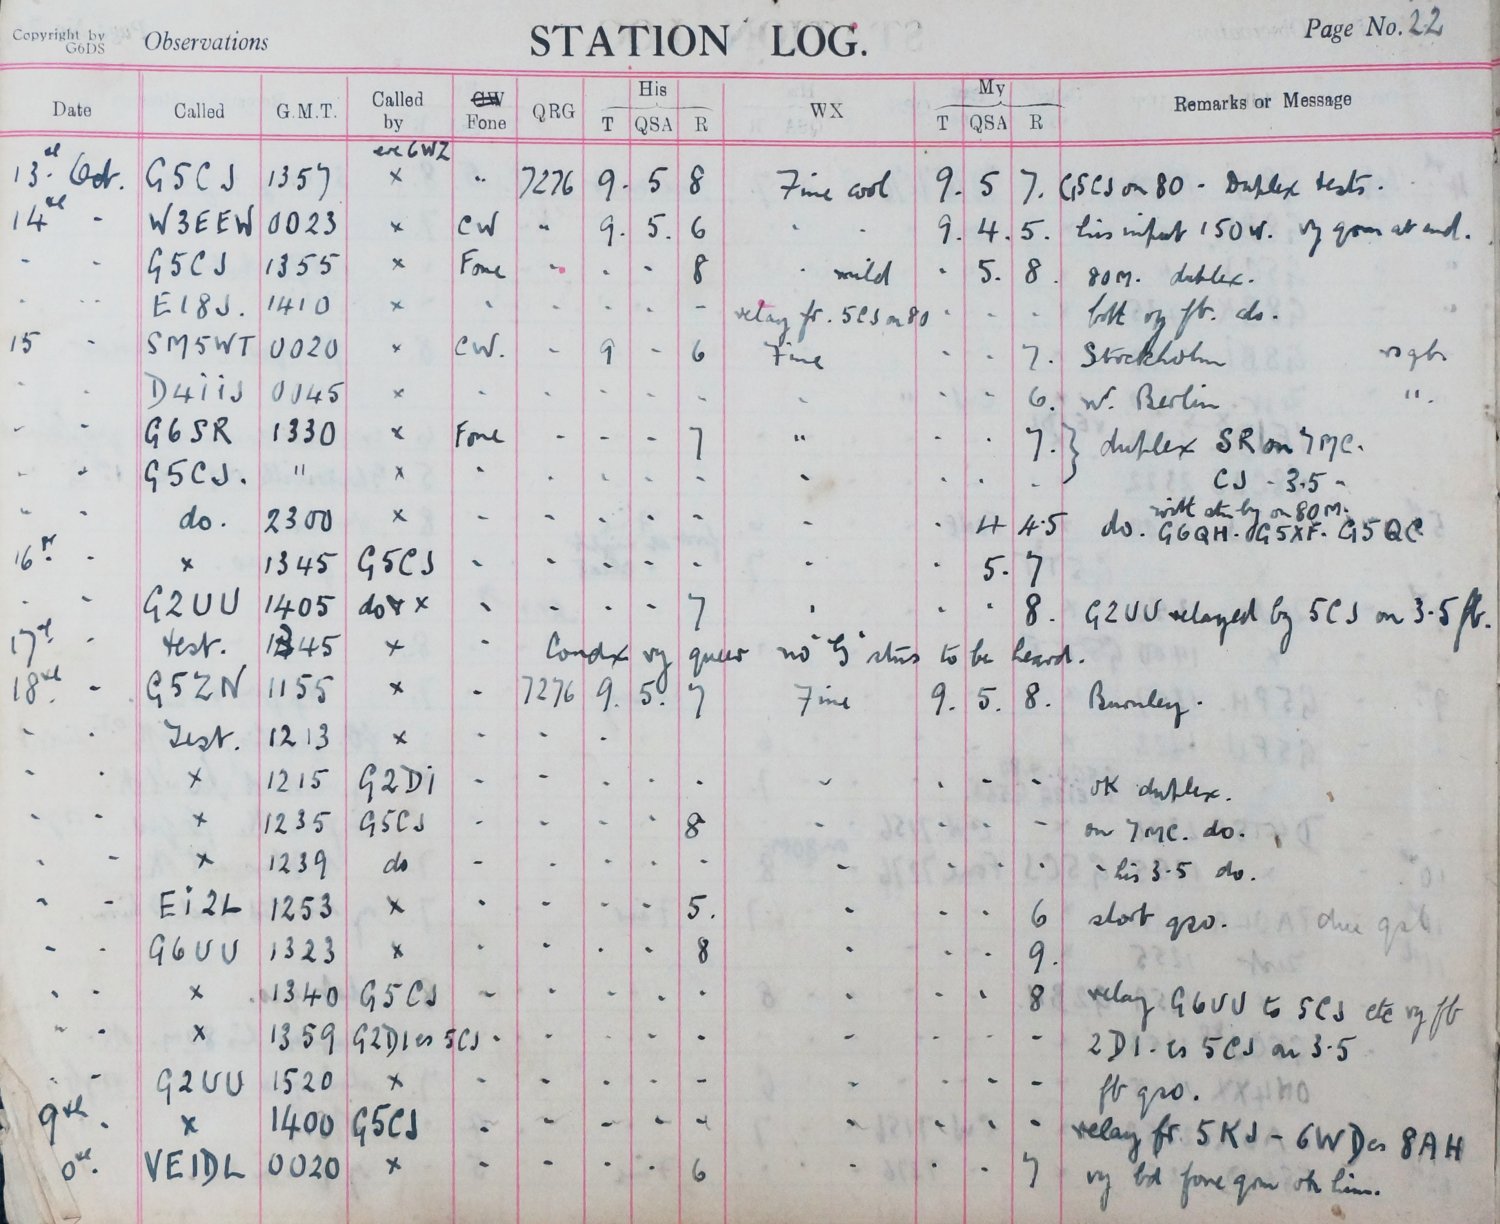 Copyright by G6DS Observations STATION LOG. Page No. 22
Date Called G.M.T. Called by CW Fone QRG His T QSA R WX My T QSA R Remarks or Message
ere 6WZ
13th Oct. G5CJ 1357 x " 7276 9. 5 8 Fine cool 9. 5 7. G5CJ on 80 - Duplex tests.
14th - W3EEW 0023 x CW " 9. 5. 6 - - 9. 4. 5. his input 150w. vy qrm at end.
- - G5CJ 1355 x Fone - - - 8 - mild - 5. 8. 80M. duplex.
- - EI8J. 1410 x - - - - - relay fr. 5CJ on 80 - - - both vy fb. do.
15 - SM5WT 0020 x CW. - 9 - 6 Fine - - 7. Stockholm
- - D4iiJ 0045 x - - - - - - - - 6. W. Berlin ".
- - G6SR 1330 x Fone - - - 7 " - - 7. } duplex SR on 7MC.
- - G5CJ. " x - - - - - - - - - CJ - 3.5 -
- - do. 2300 x - - - - - - - 4 4.5 do. with stns by on 80M. G6QH. G5XF. G5QC
16th - x 1345 G5CJ - - - - - - - 5. 7
- - G2UU 1405 do x - - - - 7 - - - 8. G2UU relayed by 5CJ on 3.5 fb.
17th - test. 1345 x Condx vy queer no "G" stns to be heard.
18th - G5ZN 1155 x - 7276 9. 5. 7 Fine 9. 5. 8. Burnley.
- - Test. 1213 x - - -
- - x 1215 G2Di - - - - - - - - - ok duplex.
- - x 1235 G5CJ - - - - 8 - - - - on 7MC. do.
- - x 1239 do - - - - - - - - - - his 3.5 do.
- - Ei2L 1253 x - - - - 5. - - - 6 short qso.
- - G6UU 1323 x - - - - 8 - - - 9.
- - x 1340 G5CJ - - - - - - - - 8 relay G6UU to 5CJ etc vy fb
- - x 1359 G2DI es 5CJ - - - - - - - - - 2DI. es 5CJ on 3.5
- - G2UU 1520 x - - - - - - - - - fb qso.
9th . x 1400 G5CJ - - - - - - - - - relay fr. 5KJ - 6WD es 8AH
0th. VE1DL 0020 x - - - - 6 - - - 7 vy bd fone qrm ok him.